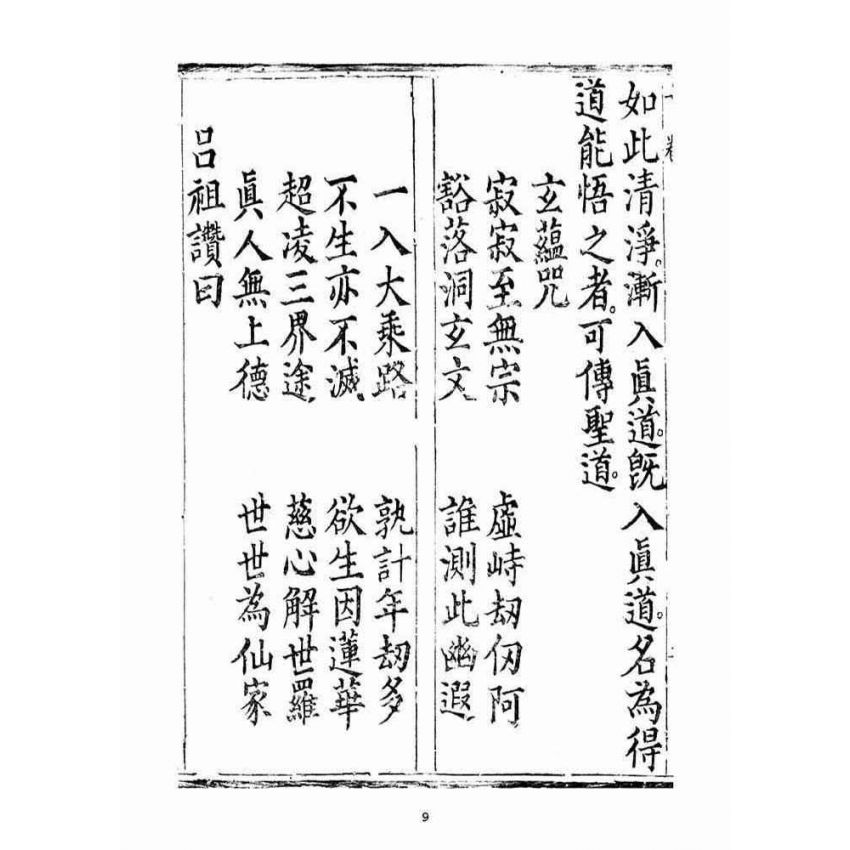 如此清淨。漸入眞道。旣入眞道。名為得
道能悟之者。可傳聖道。
玄蘊咒
寂寂至無宗 虛峙劫仞阿
豁落洞玄文 誰測此幽遐
一入大乘路 孰計年劫多
不生亦不滅 欲生因蓮華
超凌三界途 慈心解世羅
眞人無上德 世世為仙家
呂祖讚曰
9